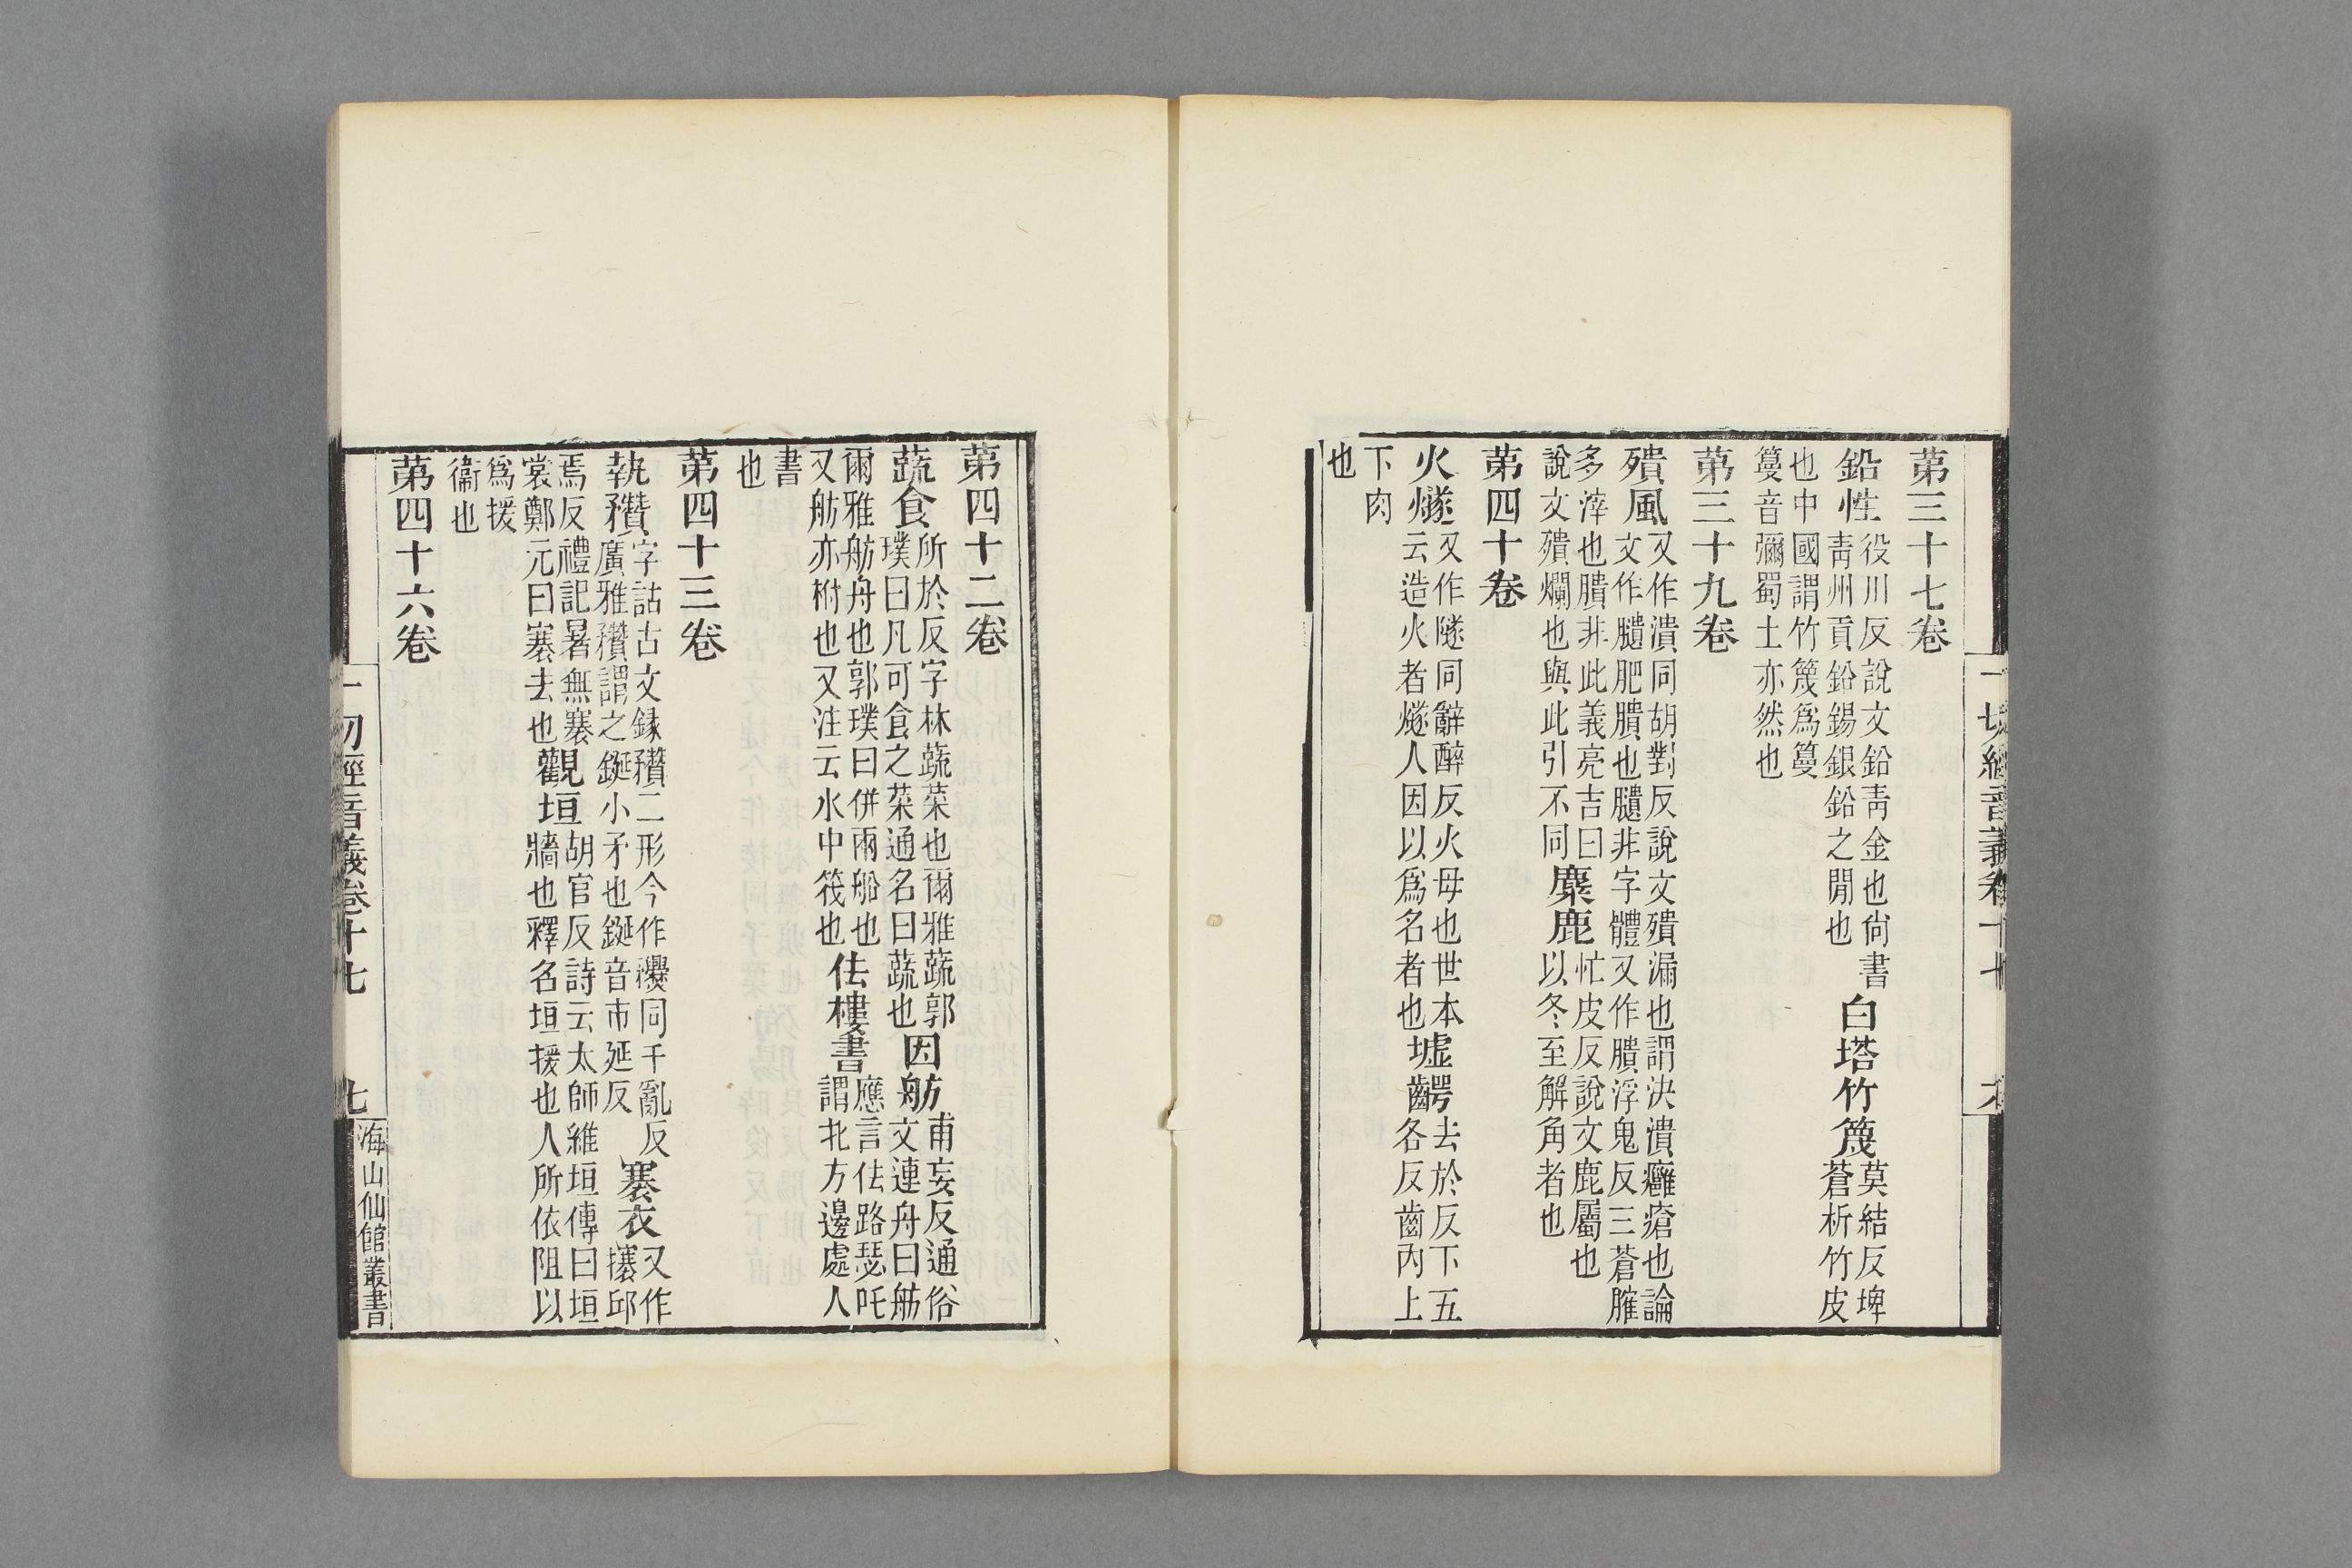 第三十七卷
鉛性役川反說文鉛靑金也尙書靑州貢鉛錫銀鉛之閒也白塔竹篾莫結反埤蒼析竹皮
也中國謂竹篾爲音彌蜀土亦然也
第三十九卷
殨風又作潰同胡對反說文殨漏也謂決潰癰瘡也論文作肥膭也非字體又作膭浮鬼反三蒼膗
多滓也膭非此義亮吉曰說文殨爛也與此引不同麋鹿忙皮反說文鹿屬也以冬至解角者也
第四十卷
火燧又作隧同辭醉反火母也世本云造火者燧人因以爲名者也墟齶去於反下五各反齒內上
下肉也
一切經音義卷十七
第四十二卷
蔬食所於反字林蔬菜也爾雅蔬郭璞曰凡可食之菜通名曰蔬也因舫甫妄反通俗文連舟曰舫
爾雅舫舟也郭璞曰併兩船也又舫亦柎也又注云水中筏也佉樓書應言佉路瑟吒謂北方邊處人
書也
第四十三卷
執穳字詁古文錄穳二形今作𥎞同千亂反廣雅穳謂之鋋小矛也鋋音市延反褰衣又作攐邱
焉反禮記暑無褰裳鄭元曰褰去也觀垣胡官反詩云太師維垣傳曰垣牆也釋名垣援也人所依阻以
爲援衞也
第四十六卷
一切經音義卷十七 七 海山仙館叢書